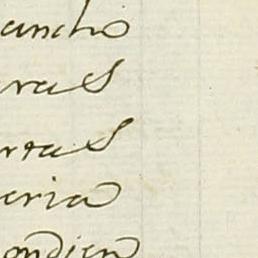 ancho
ras
rtas
eria
ondien